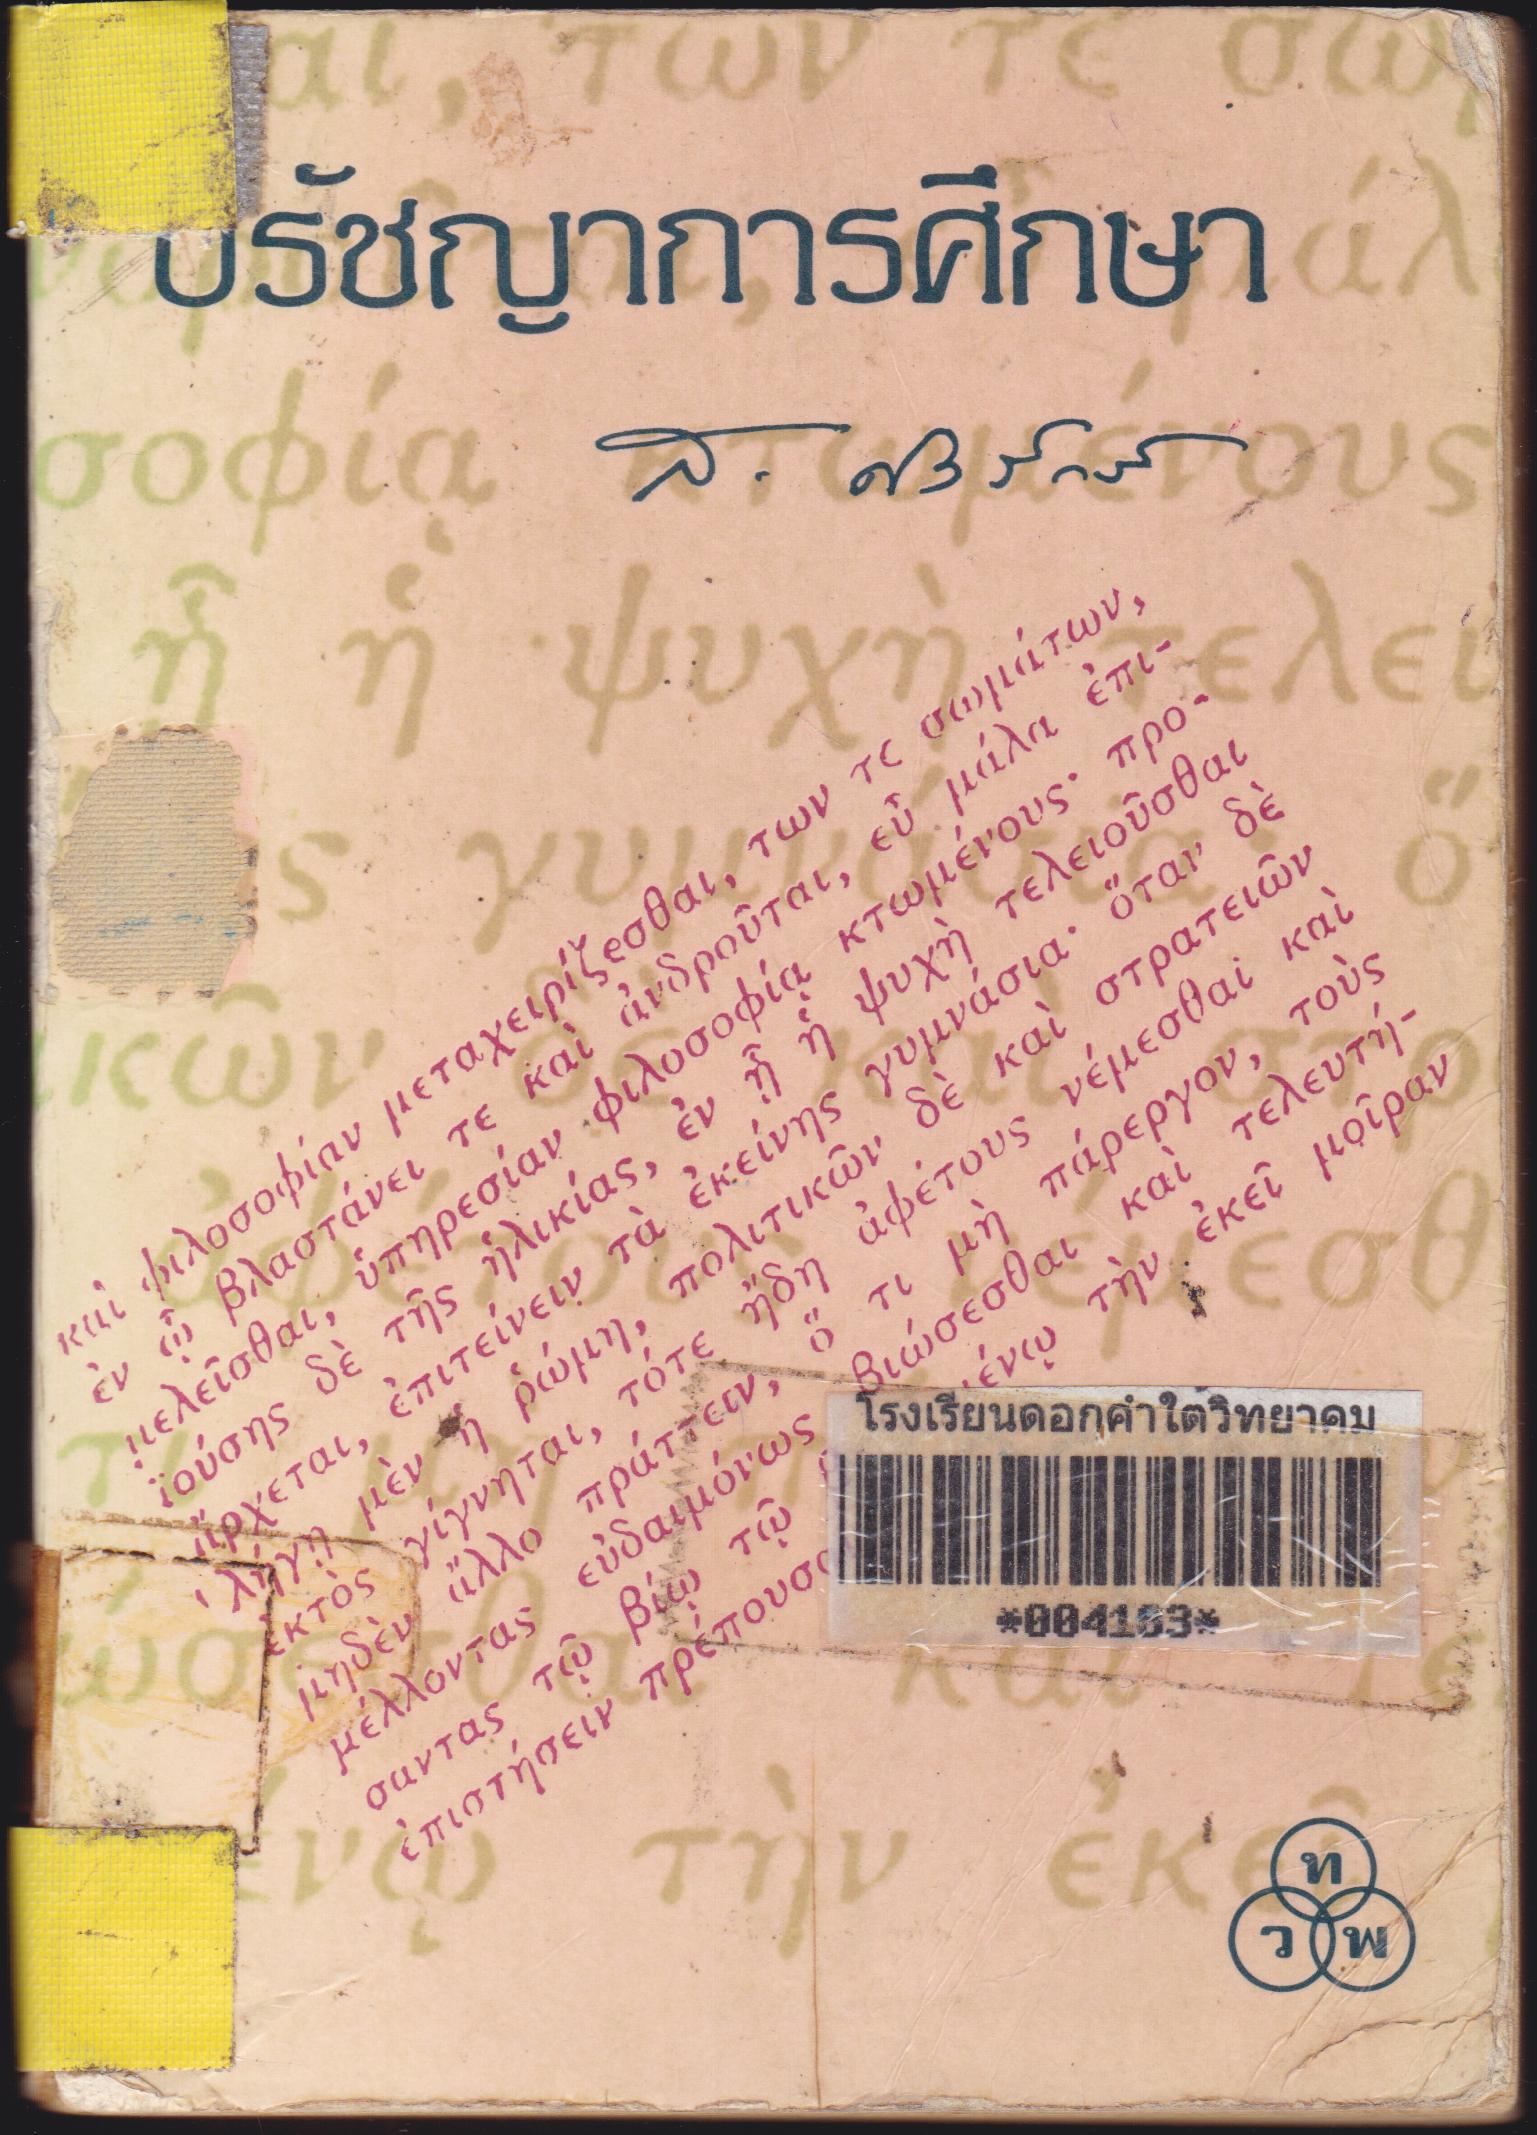 ปรัชญาการศึกษา
ส. ศิวรักษ์
καὶ φιλοσοφίαν μεταχειρίζεσθαι, των τε σωμάτων,
ἐν ᾧ βλαστάνει τε καὶ ἀνδροῦται, εὖ μάλα ἐπι-
μελεῖσθαι, ὑπηρεσίαν φιλοσοφίᾳ κτωμένους· προ-
ϊούσης δὲ τῆς ἡλικίας, ἐν ᾗ ἡ ψυχὴ τελειοῦσθαι
ἄρχεται, ἐπιτείνειν τὰ ἐκείνης γυμνάσια· ὅταν δὲ
λήγῃ μὲν ἡ ῥώμη, πολιτικῶν δὲ καὶ στρατειῶν
ἐκτὸς γίγνηται, τότε ἤδη ἀφέτους νέμεσθαι καὶ
μηδὲν ἄλλο πράττειν, ὅ τι μὴ πάρεργον, τοὺς
μέλλοντας εὐδαιμόνως βιώσεσθαι καὶ τελευτή-
σαντας τῷ βίῳ τῷ μένῳ τὴν ἐκεῖ μοῖραν
ἐπιστήσειν πρέπουσα
โรงเรียนดอกคำใต้วิทยาคม
*004103*
ท
ว พ